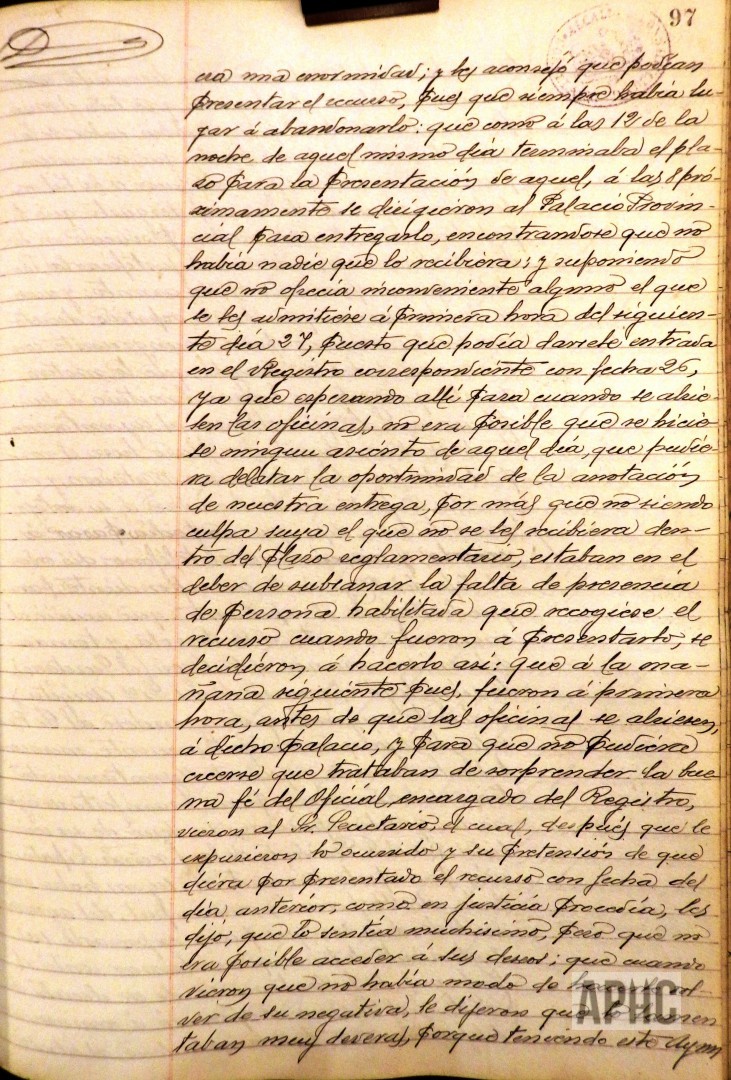 97
era una enormidad; y les aconsejó que podian
presentar el recurso, pues que siempre habia lu-
gar á abandonarlo: que como á las 12 de la
noche de aquel mismo dia terminaba el pla-
zo para la presentación de aquel, á las 8 pró-
ximamente se dirigieron al Palacio Provin-
cial para entregarlo, encontrandose que no
habia nadie que lo recibiera; y suponiendo
que no ofrecia inconveniente alguno el que
se les admitiese á primera hora del siguien-
te dia 27, puesto que podia darsele entrada
en el Registro correspondiente con fecha 26,
ya que esperando alli para cuando se abrie-
sen las oficinas, no era posible que se hicie-
se ningun asiento de aquel dia, que pudie-
ra delatar la oportunidad de la anotación
de nuestra entrega, por más que no siendo
culpa suya el que no se les recibiera den-
tro del plazo reglamentario, estaban en el
deber de subsanar la falta de presencia
de persona habilitada que recogiese el
recurso cuando fueron á presentarlo, se
decidieron á hacerlo asi: que á la ma-
ñana siguiente pues, fueron á primera
hora, antes de que las oficinas se abriesen,
á dicho Palacio, y para que no pudiera
creerse que trataban de sorprender la bue
na fé del Oficial encargado del Registro,
vieron al Sr. Secretario, el cual, despues que le
expusieron lo ocurrido y su pretensión de que
diera por presentado el recurso con fecha del
dia anterior, como en justicia procedia, les
dijo, que lo sentia muchisimo, pero que no
era posible acceder á sus deseos; que cuando
vieron que no habia modo de vol-
ver de su negativa, le dijeron que lo lamen
taban muy deveras, porque teniendo este Ayun
APHC